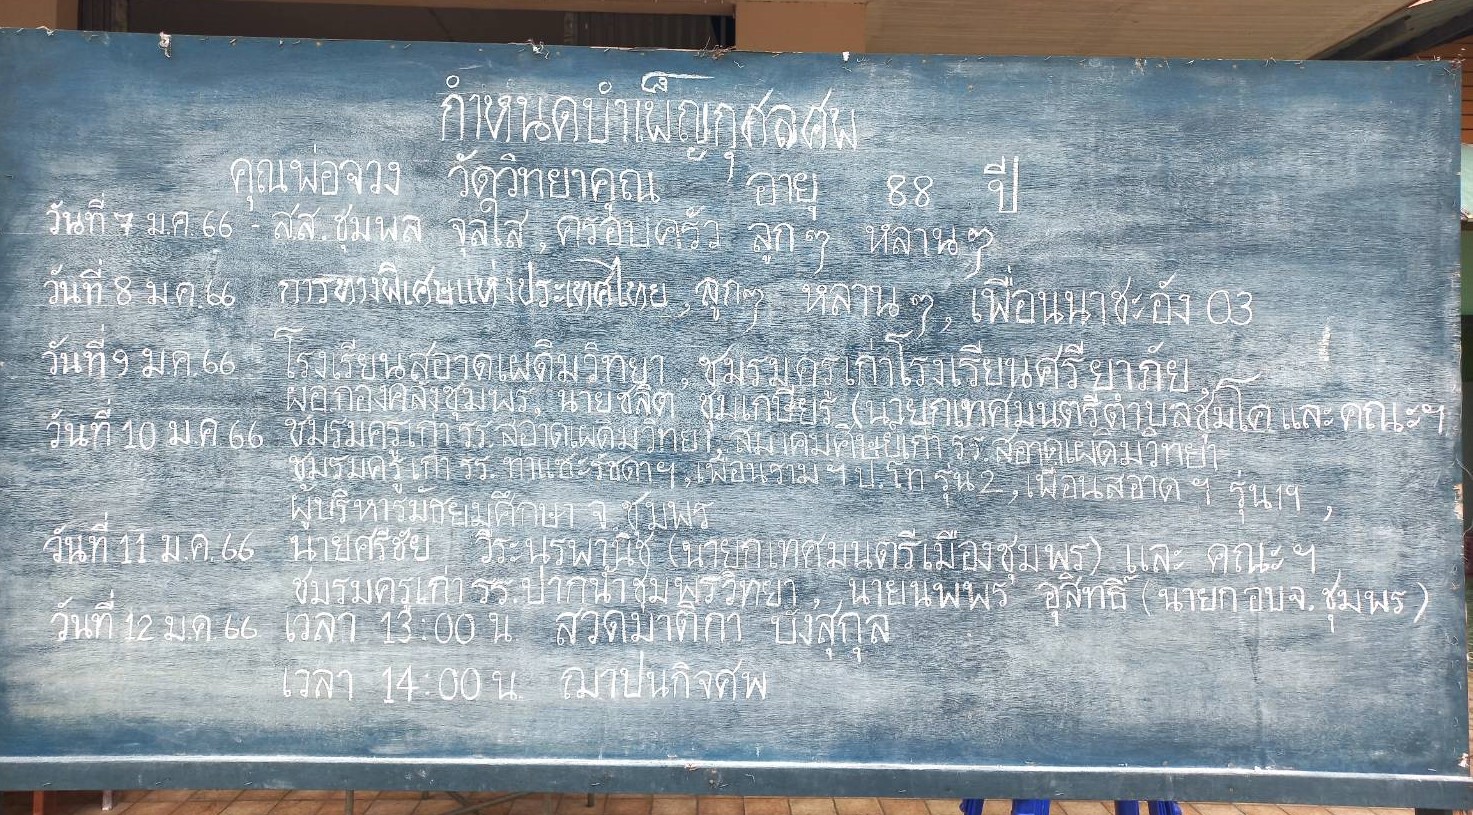 กำหนดบำเพ็ญกุศลศพ
คุณพ่อจวง วัดวิทยาคุณ อายุ 88 ปี
วันที่ 7 ม.ค.66 - สส.ชุมพล จุลใส , ครอบครัว ลูกๆ หลานๆ
วันที่ 8 ม.ค.66 การทางพิเศษแห่งประเทศไทย , ลูกๆ หลานๆ , เพื่อนนาชะอัง 03
วันที่ 9 ม.ค.66 โรงเรียนสอาดเผดิมวิทยา , ชมรมครูเก่าโรงเรียนศรียาภัย ,
ผอ.กองคลังชุมพร, นายชลิต ชุมเกษียร (นายกเทศมนตรีตำบลชุมโค และ คณะฯ
วันที่ 10 ม.ค 66 ชมรมครูเก่า รร.สอาดเผดิมวิทยา , สมาคมศิษย์เก่า รร.สอาดเผดิมวิทยา
ชุมรมครูเก่า รร. ท่าแซะรัชดาฯ , เพื่อนราม ฯ ป.โท รุ่น 2 , เพื่อนสอาด ฯ รุ่น ,
ผู้บริหารมัธยมศึกษา จ.ชุมพร
วันที่ 11 ม.ค.66 นายศรีชัย วีระนรพานิช (นายกเทศมนตรีเมืองชุมพร) และ คณะ ฯ
ชมรมครูเก่า รร.ปากน้ำชุมพรวิทยา , นายนพพร อุสิทธิ์ (นายก อบจ.ชุมพร)
วันที่ 12 ม.ค.66 เวลา 13:00 น สวดมาติกา บังสุกุล
เวลา 14:00 น. ฌาปนกิจศพ